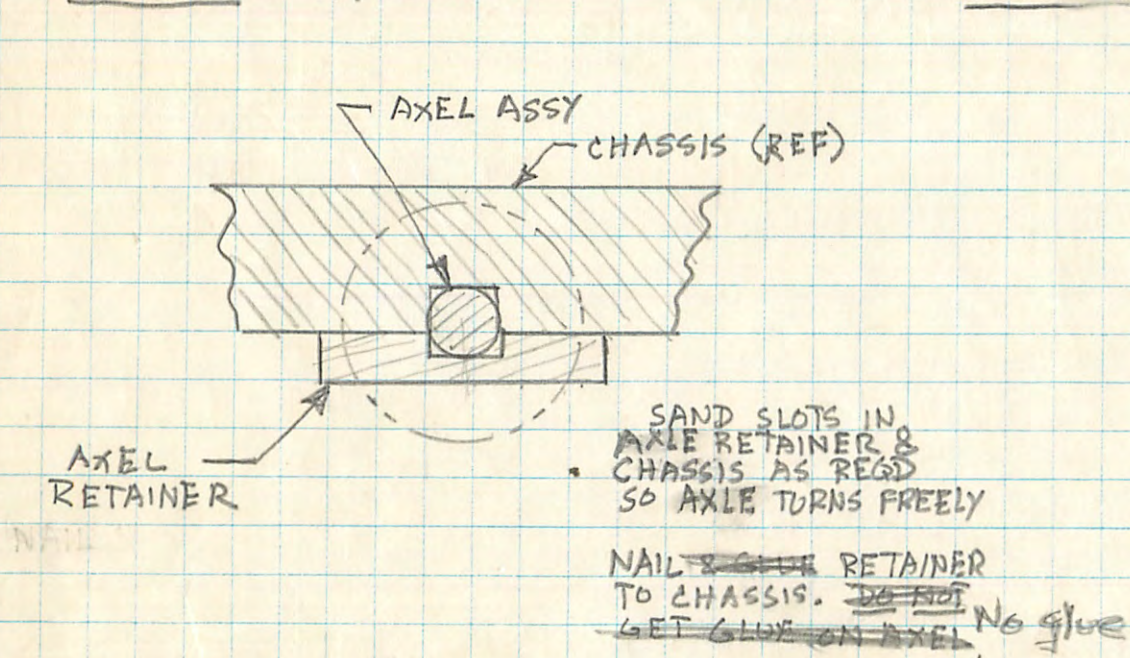 AXEL ASSY
CHASSIS (REF)
AXEL
RETAINER
NAIL
SAND SLOTS IN
AXLE RETAINER &
CHASSIS AS REQD
SO AXLE TURNS FREELY
NAIL & GLUE RETAINER
TO CHASSIS. DO NOT
GET GLUE ON AXEL No glue